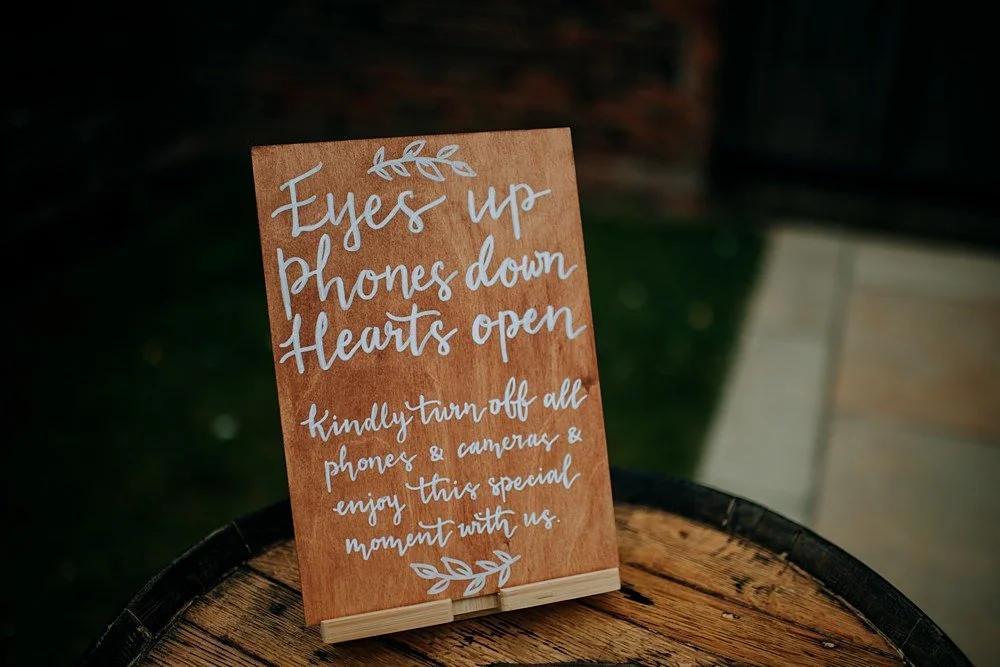 Eyes up
Phones down
Hearts open
Kindly turn off all
phones & cameras &
enjoy this special
moment with us.